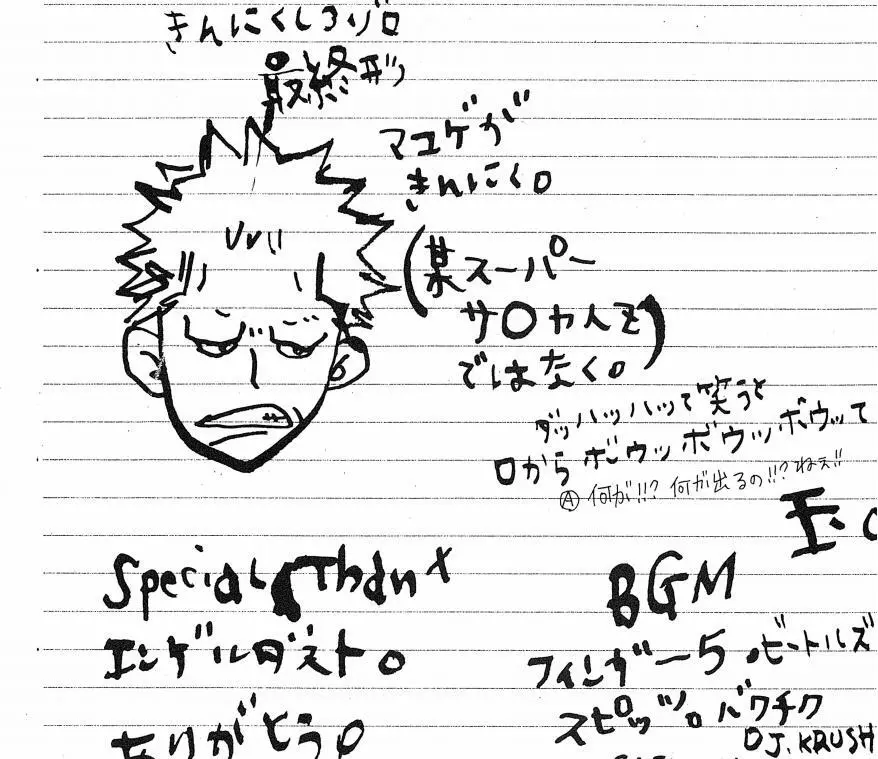 きんにくしろゾロ
最終形
マユゲが
きんにく。
(某スーパー
サ〇ヤ人Z)
ではなく。
ダッハッハッハッて笑うと
口からボウッボウッボウッて
Ⓐ 何が!!? 何が出るの!!?ねぇ!!
玉。
Special Thanx
エンゲルダスト。
ありがとう。
BGM
フィンガー5。ビートルズ
スピッツ。バクチク
DJ.KRUSH